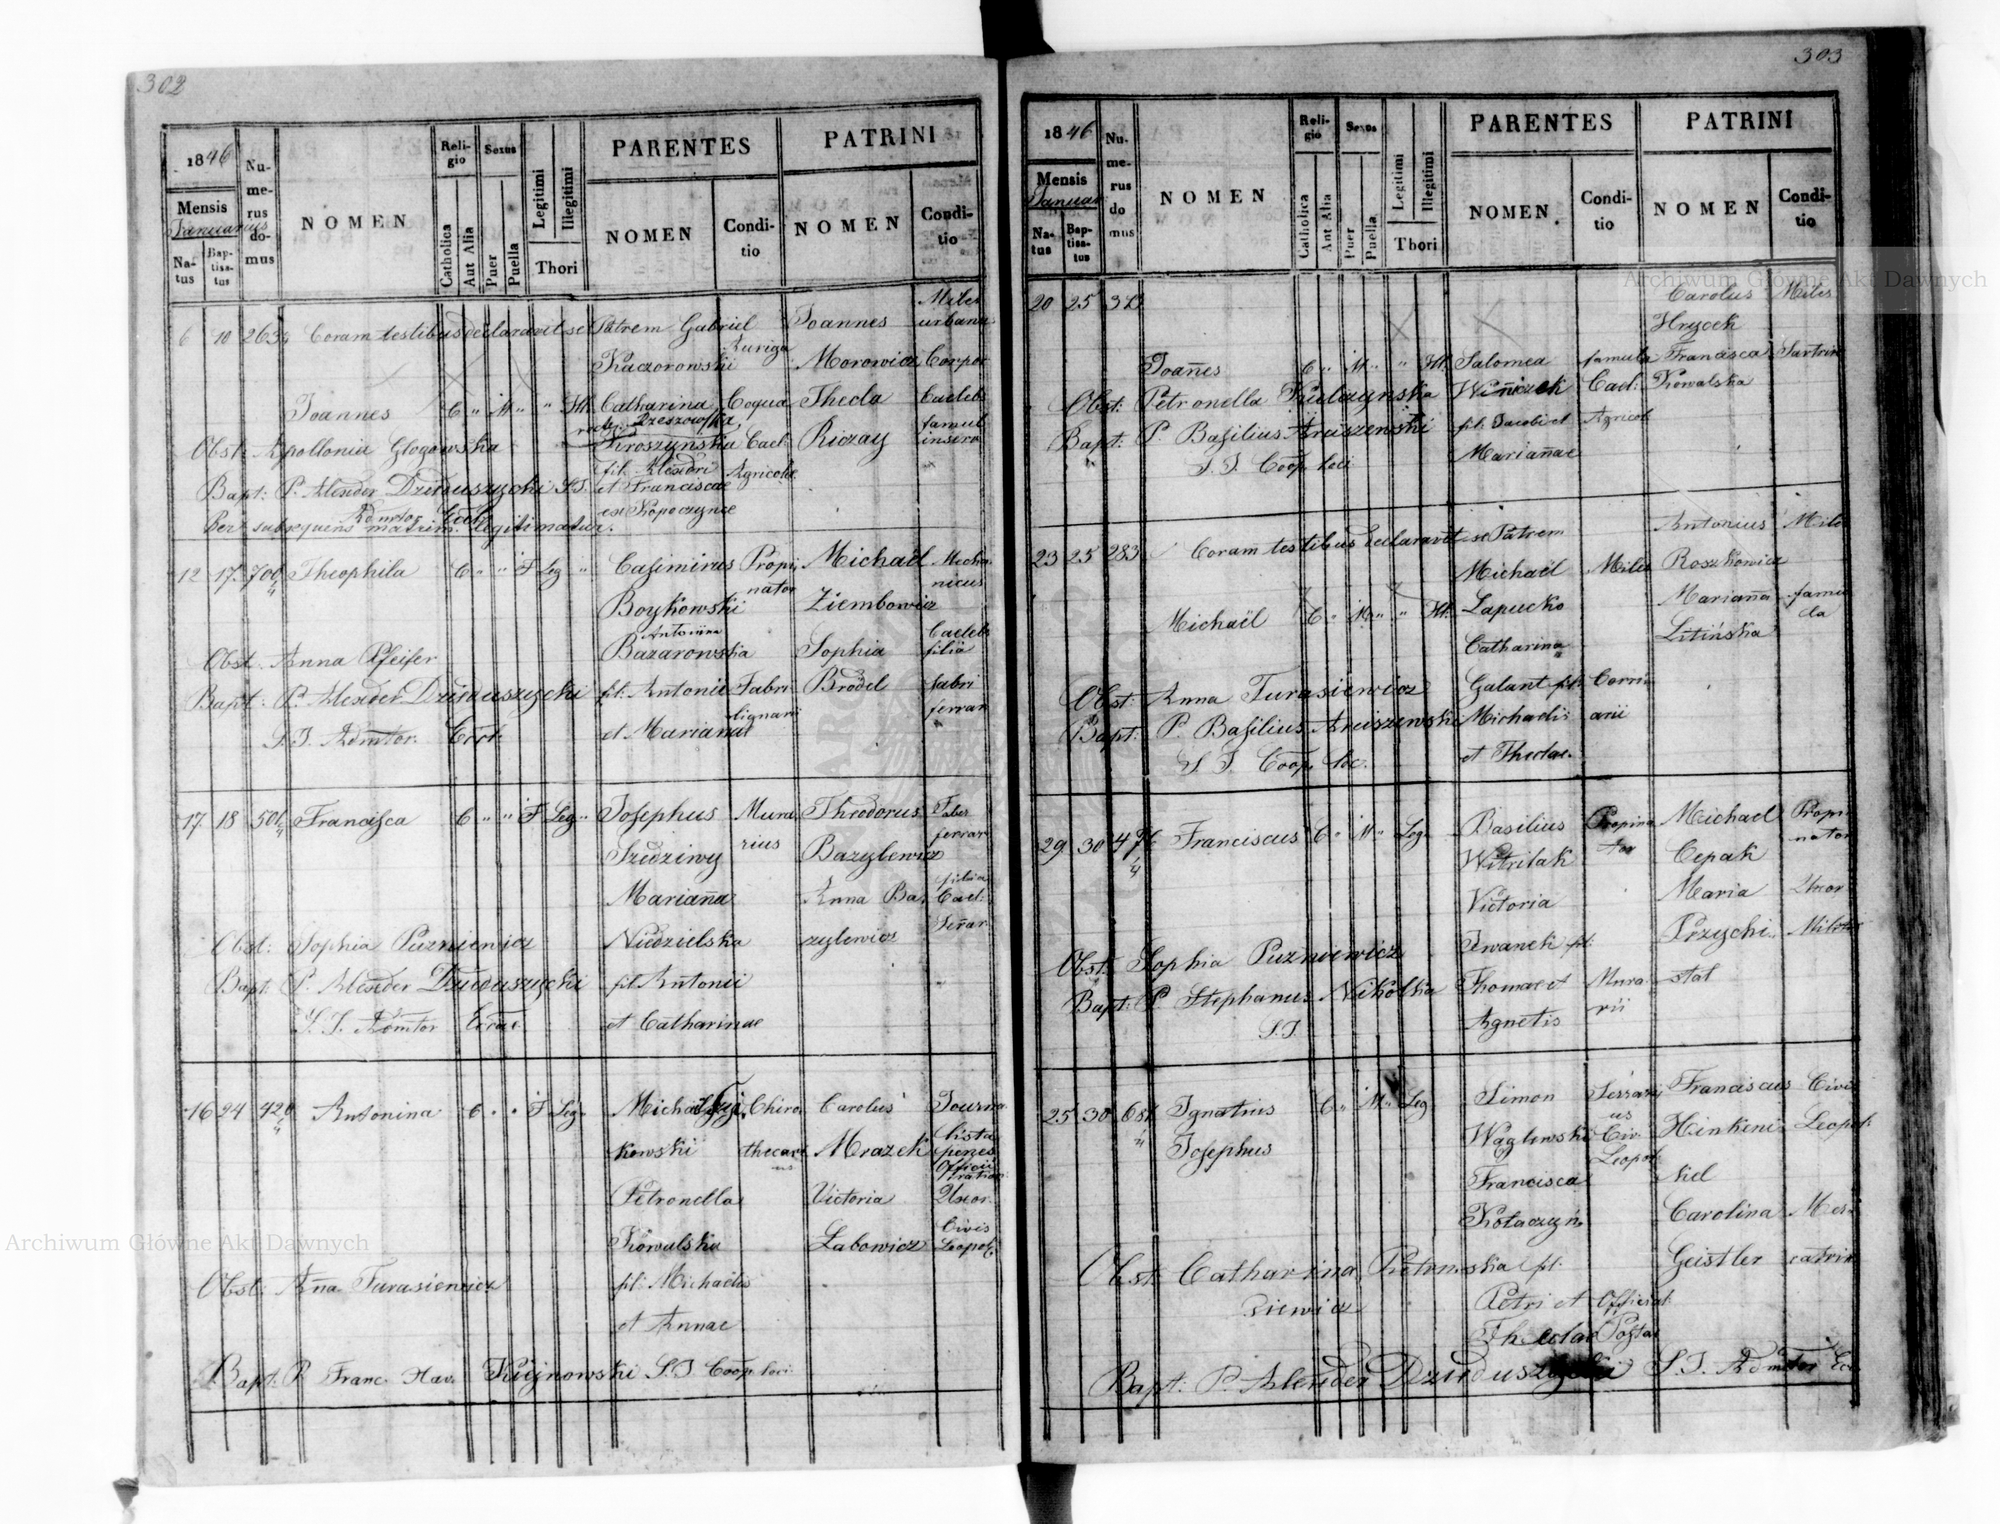 302
1846
Mensis
Januarius
Natus
Baptisatus
Numerus domus
NOMEN
Religio
Catholica
Aut Alia
Sexus
Puer
Puella
Legitimi
Illegitimi
Thori
PARENTES
NOMEN
Conditio
PATRINI
NOMEN
Conditio
6 10 263 Coram testibus declaravit se Patrem Gabriel Joannes Miles urbanus
Kaczorowski Auriga Morowicz Corpor
Joannes C " M " " Ill. Catharina Coqua Thecla Caelebs
Obst: Apollonia Glogowska Kroszyńska Cael: Riczay famul
Bapt: P. Alexder Dzieduszycki S.J. et Franciscae Agricolae
Per subsequens matrim. legitimatur.
12 17 700 Theophila C " " F Leg " Casimirus Propinator Michaël Mechanicus
Boykowski Ziembowicz
Antonina
Bazarowska Sophia Caelebs filia
Obst. Anna Pfeifer
Bapt: P. Alexder Dzieduszycki fil. Antonii Fabri Brodel fabri
S.J. Admtor. Eccl. et Marianae lignarii ferrar
17 18 501 Francisca C " " F Leg " Josephus Murarius Theodorus Faber ferrar
Szidziwy Bazylewicz
Marianna Anna Bazylewicz filia Cael:
Obst: Sophia Puzniewicz Niedzielska
Bapt: P. Alexder Dzieduszycki fil Antonii
S.J. Admtor Eccae et Catharinae
16 24 420 Antonina C " " F Leg Michaël Chirothecarius Carolus Journalista
kowski Mrazek penes Officii
Petronella Victoria Uxor
Kowalska Labowicz Civis Leopol.
Obst: Anna Turasiewicz fil. Michaëlis
et Annae
Bapt. P. Franc. Xav. Kiejnowski S.J. Coop. loci
303
1846
Mensis
Januar
Natus
Baptisatus
Numerus domus
NOMEN
Religio
Catholica
Aut Alia
Sexus
Puer
Puella
Legitimi
Illegitimi
Thori
PARENTES
NOMEN.
Conditio
PATRINI
NOMEN
Conditio
20 25 Carolus Miles
Hrycek
Joannes C " M " " Ill. Salomea famula Francisca Sartrix
Obst: Petronella Kulczynska Winiczek Cael: Kowalska
Bapt: P. Basilius Aruszewski fil. Jacobi et Agricol
S.J. Coop. loci Mariannae
23 25 283 Coram testibus declaravit se Patrem Antonius Miles
Michaël Miles Roszkowicz
Michaël C " M " " Ill. Lapucko Marianna famula
Catharina Litińska
Obst: Anna Turasiewicz Galant fil:
Bapt: P. Basilius Aruszewski Michaelis
S.J. Coop. loc. et Theclae.
29 30 476 Franciscus C " M " Leg. Basilius Propinator Michael Propinator
Witrilak Cepak
Victoria Maria Uxor
Obst: Sophia Puzniewicz Iwanek fil: Przychistal Militis
Bapt: P. Stephanus Nikolka Thomae et Murarii
S.J. Agnetis
25 30 681 Ignatius C " M " Leg Simon Franciscus Civis
Josephus Waglewski Civ. Leopol Hinkenikel Leopol:
Francisca Carolina Mercatrix
Kołaczyń. Geistler
Obst: Catharina Piotrowska fil:
Petri et Official.
Theclae Postae
Bapt. P. Alexder Dzieduszycki S.J. Admtor Ecc
Archiwum Główne Akt Dawnych
Archiwum Główne Akt Dawnych